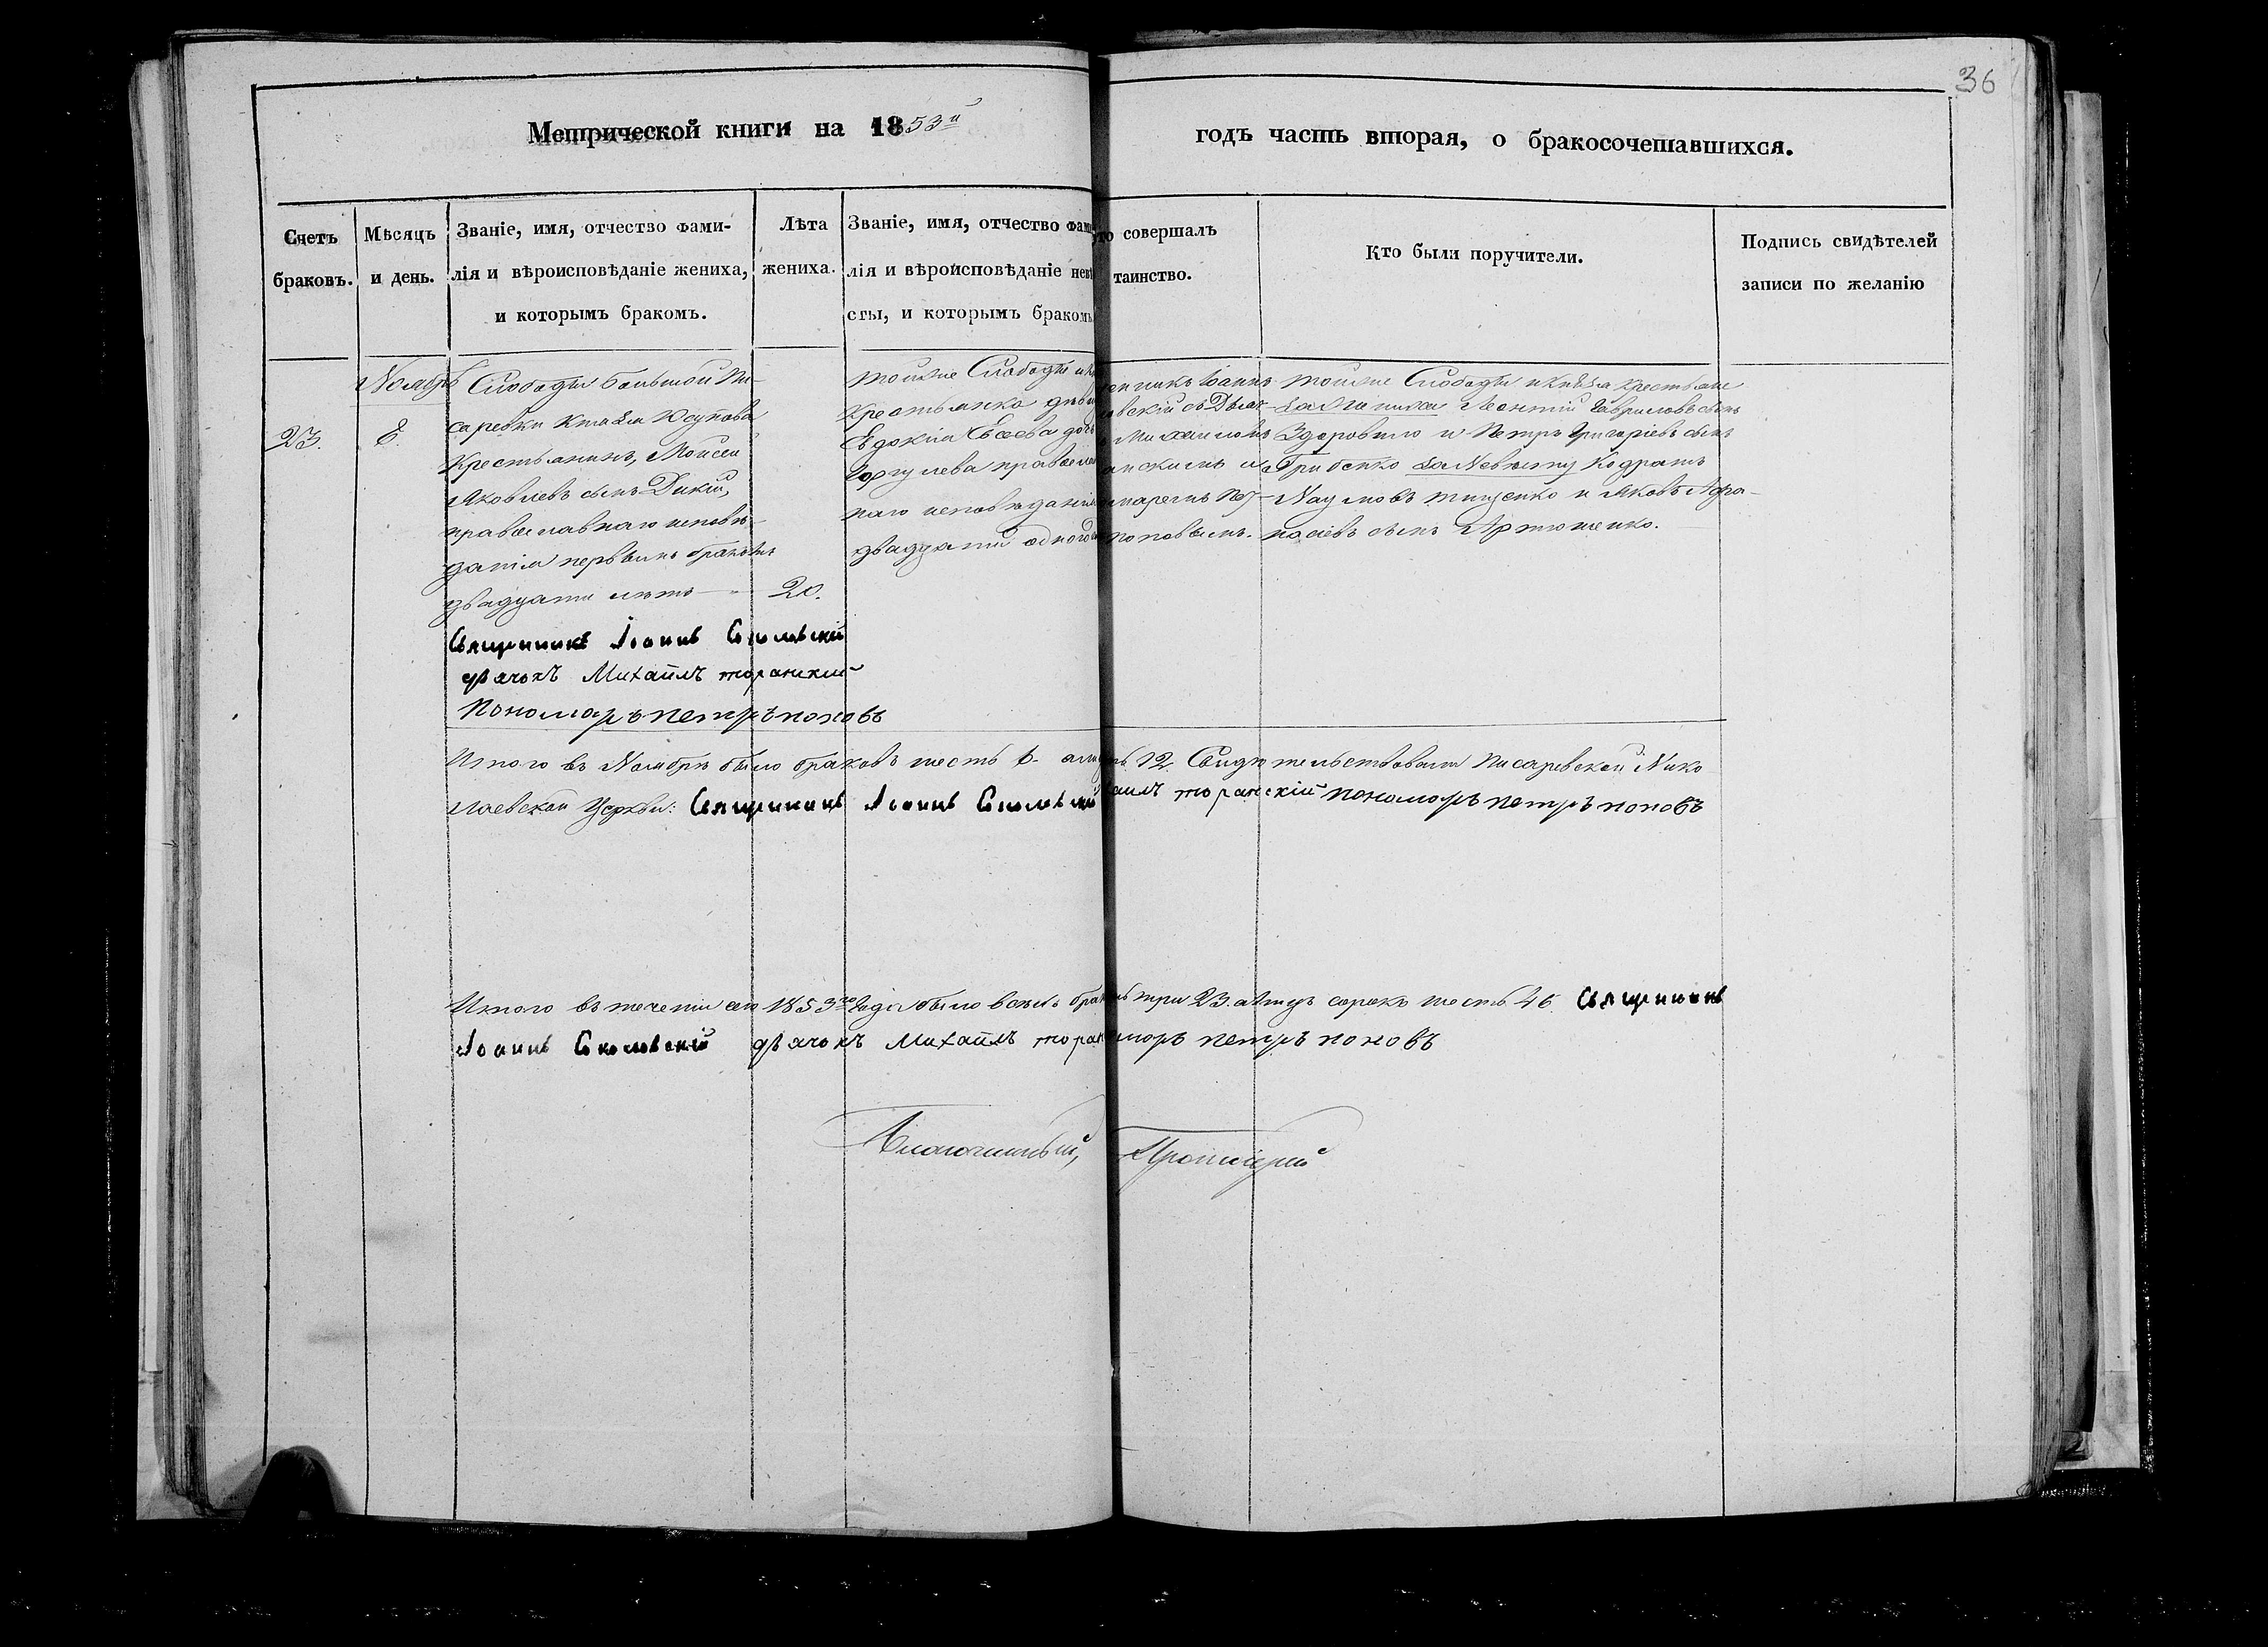 36
Метрической книги на 1853й
годъ часть вторая, о бракосочетавшихся.
Счетъ
браковъ.
Мѣсяцъ
и день.
Званіе, имя, отчество фами-
лія и вѣроисповѣданіе жениха,
и которымъ бракомъ.
Лѣта
жениха.
Званіе, имя, отчество фам
лія и вѣроисповѣданіе нев
сты, и которымъ бракомъ
то совершалъ
таинство.
Кто были поручители.
Подпись свидѣтелей
записи по желанію
Ноябрь
23.
8.
Слободы Большой Пи-
саревки Князя Юсупова
Крестьянинъ, Моисей
Яковлевъ сынъ Дикій,
православнаго исповѣ-
данія первымъ бракомъ
двадцати лѣтъ
20.
тойже Слободы и к
Крестьянка дѣви
Евдокія Евсеева доч
православ
наго исповѣданія
двадцати одного
енникъ Іоаннъ
овскій съ Дьяч-
Михаиломъ
анскимъ и
маремъ Пет-
Поповымъ.
тойже Слободы и князя крестьяне
за Жениха Леонтій Гавриловъ сынъ
Здоровило и Петръ Григоріевъ сынъ
Грибенко за Невѣсту Кодратъ
Наумовъ Тищенко и Яковъ Афа-
насіевъ сынъ Артюшенко.
Священникъ Іоаннъ Соколовскій
дьячокъ Михаилъ торанскій
Пономарь петръ поповъ
Итого въ Ноябрѣ было браковъ шесть 6. а лиць 12. Свидѣтельствовали Писаревской Нико
лаевской Церкви: Священникъ Іоаннъ Соколовскій
аилъ торанскій пономарь петръ поповъ
Итого въ теченіи сего 1853го года было всѣхъ бра
три 23. а лицъ сорокъ шесть 46. Священникъ
Іоаннъ Соколовскій дьячокъ Михаилъ торан
марь петръ поповъ
Благочинный, Протоіерей